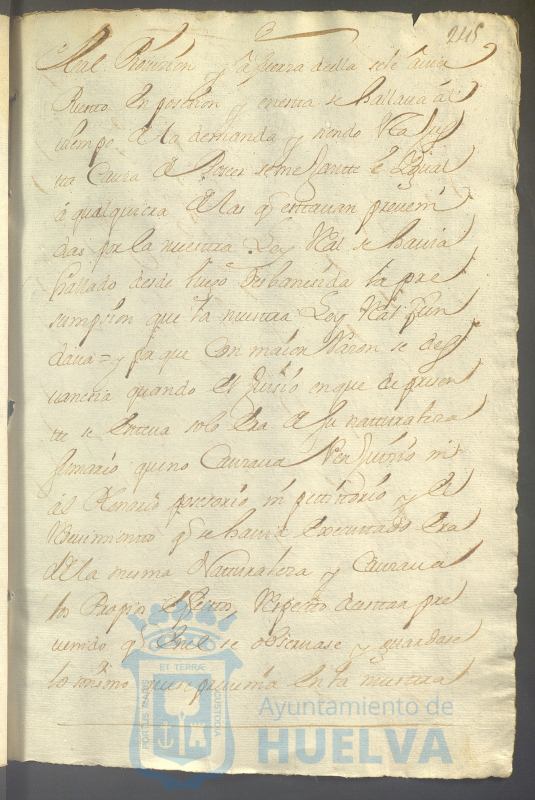 245
Real Provision y la fuerza della solo havia
Puerto en posesion y enesta se hallava al
tiempo de la demanda y siendo Real Jus
ta Causa de Poseer semejante e Ygual
á qualquiera de las q estavan preveni
das por la nuestra Ley Real se havia
hallado desde luego desbanesida la pre
sumpsion que la nuestra Ley Real fun
dava = y pa que con maior Razon se des
vanecia quando el Juisio en que de presen
te se Entrava solo Era de su natturaleza
sumario que no Causava Perjuisio ni
al Plenario posesorio ni petittorio y el
Resivimiento q se havia Executtado Era
de la misma Natturaleza y Causava
los Propios Efectos Respecto de estar pre
venido q en el se observase y guardase
lo mismo que se prevenia En la nuestra
PORTUS MARIS
ET TERRÆ
CUSTODIA
Ayuntamiento de
HUELVA